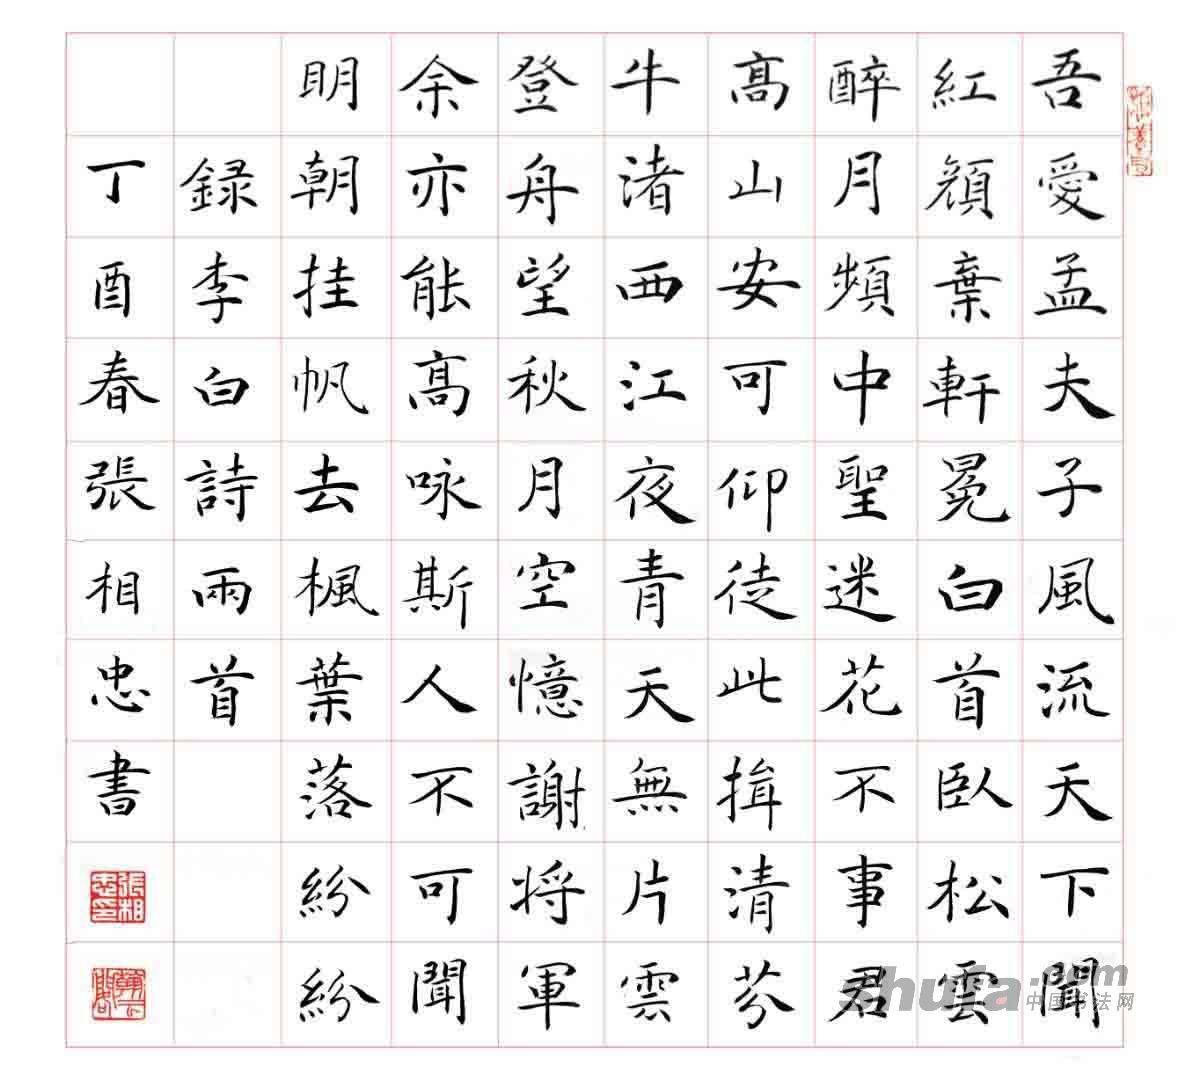 吾愛孟夫子風流天下聞
紅顔棄軒冕白首臥松雲
醉月頻中聖迷花不事君
高山安可仰徒此揖清芬
牛渚西江夜青天無片雲
登舟望秋月空憶謝将軍
余亦能高咏斯人不可聞
明朝挂帆去楓葉落紛紛
録李白詩兩首
丁酉春張相忠書
張相忠印
shufa.com
中国书法网